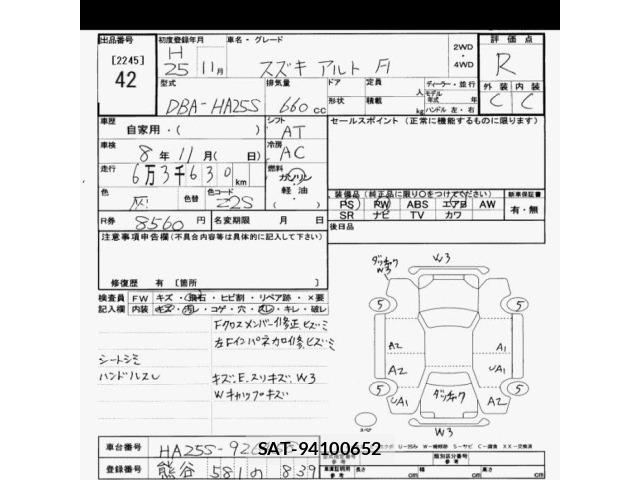 出品番号 初度登録年月 車名・グレード 評価点
[2245] H 2WD
42 25 11月 スズキ アルト F 4WD R
型式 排気量 ドア 定員 ディーラー・並行 外装 内装
形状 積載 人 モデル年式 年式
DBA-HA25S 660cc kg ハンドル 左・右 C C
車歴 シフト セールスポイント(正常に機能するものに限ります)
自家用・( ) AT
車検 冷房
8年 11月 ( 日) AC
走行 燃料
6万3千630km ガソリン
色 色替 色コード 軽油 装備品(純正品に限り○をつけてください) 新車保証書
灰 Z2S PS PW ABS エアB AW 有・無
R券 8560円 名変期限 月 日 SR ナビ TV カワ
注意事項申告欄(不具合内容等は具体的に記入して下さい) 後日品
修復歴 有 [箇所 ]
検査員 FW キズ・飛石・ヒビ割・リペア跡・×要
記入欄 内装 キズ・汚レ・コゲ・穴・スレ・キレ・破レ
Fクロスメンバー修正、ヒズミ
左Fインパネカロ修、ヒズミ
シートシミ
ハンドルスレ キズ、E、スリキズ、W3
Wキャップキズ
W3
ダッチャク
W3
5 5
A2 A1
A2 UA1
5 5
UA1 ダッチャク A2
W3
車台番号 HA25S-926
SAT-94100652
登録番号 熊谷 581 の 839